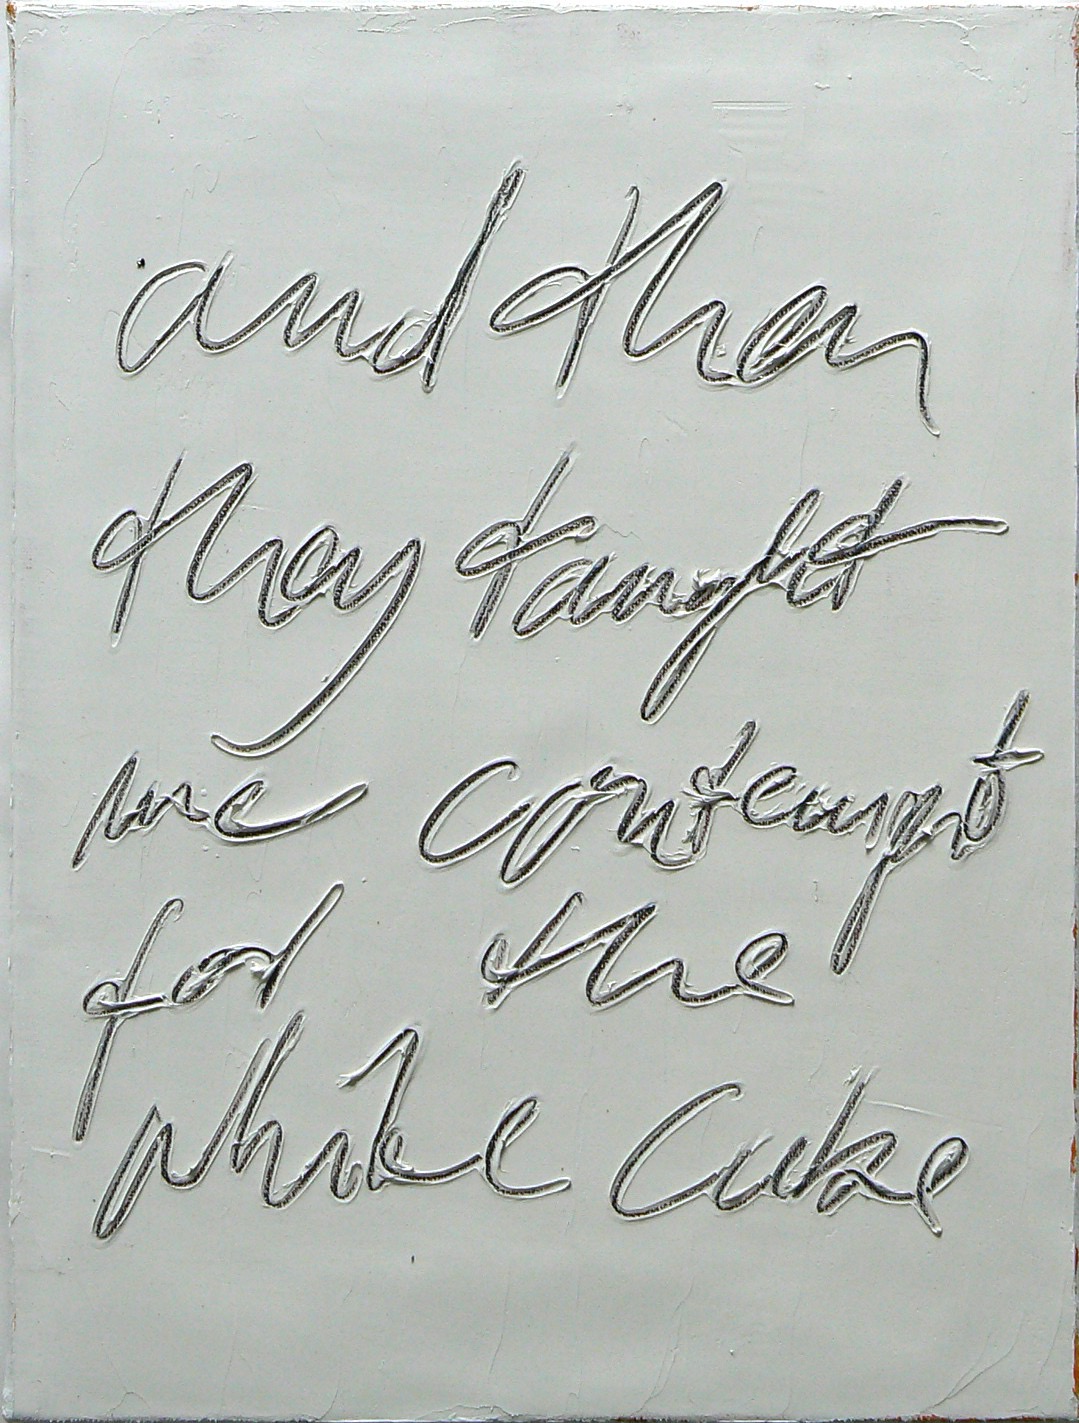 and then
they taught
me contempt
for the
white cube